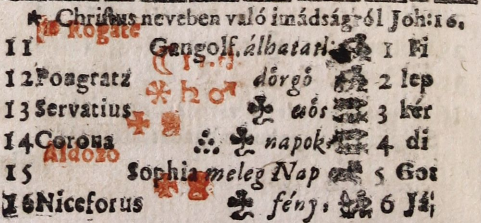 Christus neveben való imádságról Joh: 16.
Rogate
11 Gangolf. álhatatl 1 Fi
12 Pongratz dörgő 2 lep
13 Servatius esős 3 kér
14 Corona napok 4 di
Áldozo
15 Sophia meleg Nap 5 Got
16 Niceforus fény, 6 Já